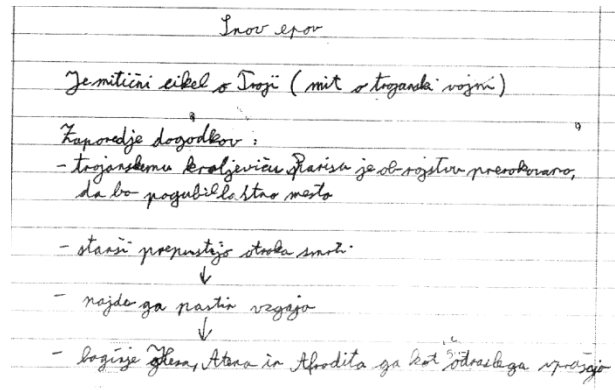 Snov epov
Je mitični cikel o Troji (mit o trojanski vojni)
Zaporedje dogodkov:
- trojanskemu kraljeviču Parisu je ob rojstvu prerokovano,
da bo pogubil lastno mesto
- starši prepustijo otroka smrti
↓
- najde ga pastir vzgaja
↓
- boginje Hera, Atena in Afrodita ga kot odraslega vprašajo